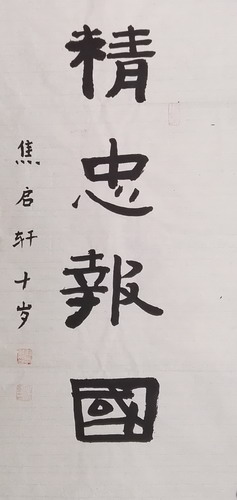 精忠報國
焦启轩十岁